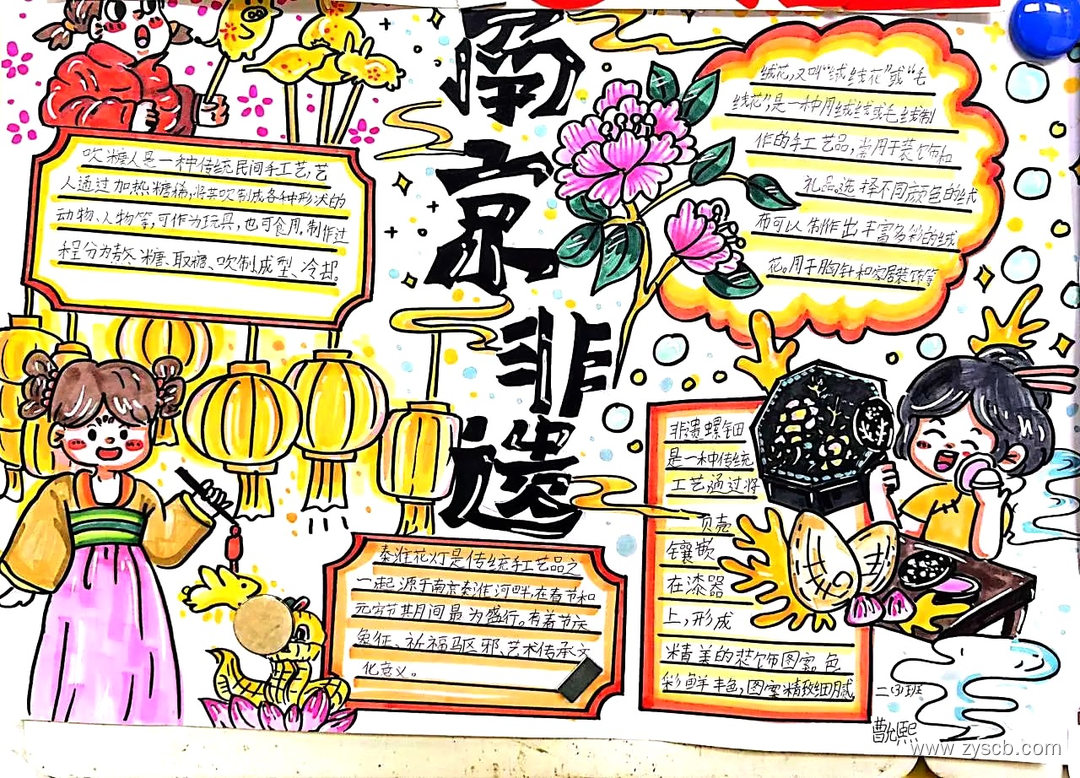 南京非遗
吹糖人是一种传统民间手工艺,艺
人通过加热糖稀,将其吹制成各种形状的
动物、人物等,可作为玩具,也可食用,制作过
程分为熬糖、取糖、吹制成型、冷却
绒花,又叫“绒线花”或“毛
线花”,是一种用绒线或毛线制
作的手工艺品,常用于装饰和
礼品。选择不同颜色的绒
布可以制作出丰富多彩的绒
花。用于胸针和家居装饰等
秦淮花灯是传统手工艺品之
一起源于南京秦淮河畔,在春节和
元宵节其月间最为盛行。有着节庆
象征、祈福驱邪、艺术传承文
化意义。
非遗螺钿
是一种传统
工艺通过将
贝壳
镶嵌
在漆器
上,形成
精美的装饰图案,色
彩鲜丰色,图案精致细腻
二(3)班
曹允熙
www.zyscb.com